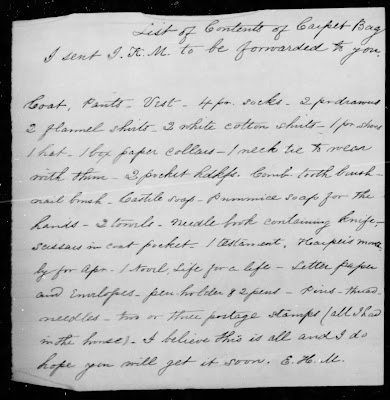 List of Contents of Carpet Bag
I sent J. K. M. to be forwarded to you
Coat, Pants - Vest - 4 pr. socks - 2 pr drawers
2 flannel shirts - 2 white cotton shirts - 1 pr. shoes
1 hat - 1 box paper collars - 1 neck tie to wear
with them - 2 pocket Hdkfs. Comb tooth brush -
nail brush - Castile soap - Pummice soap for the
hands - 2 towels - Needle book containing knife,
scissars in coat pocket - 1 Testament. Harper's month
ly for Apr. - 1 Novel, Life for a life - Letter paper
and Envelopes - pen holder & 2 pens - Pins - thread
needles - two or three postage stamps (all I had
in the house). I believe this is all and I do
hope you will get it soon. E. H. M.